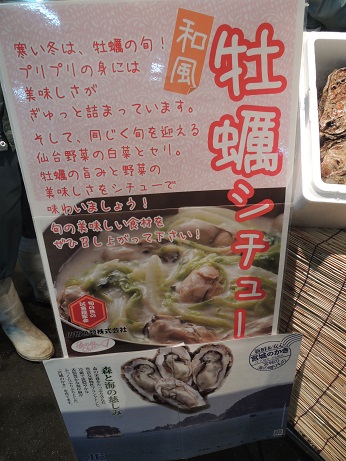 和風
牡蠣シチュー
寒い冬は、牡蠣の旬！
プリプリの身には
美味しさが
ぎゅっと詰まっています。
そして、同じく旬を迎える
仙台野菜の白菜とセリ。
牡蠣の旨みと野菜の
美味しさをシチューで
味わいましょう！
旬の美味しい食材を
ぜひ召し上がって下さい！
株式会社
宮城のかき
森と海の慈しみ